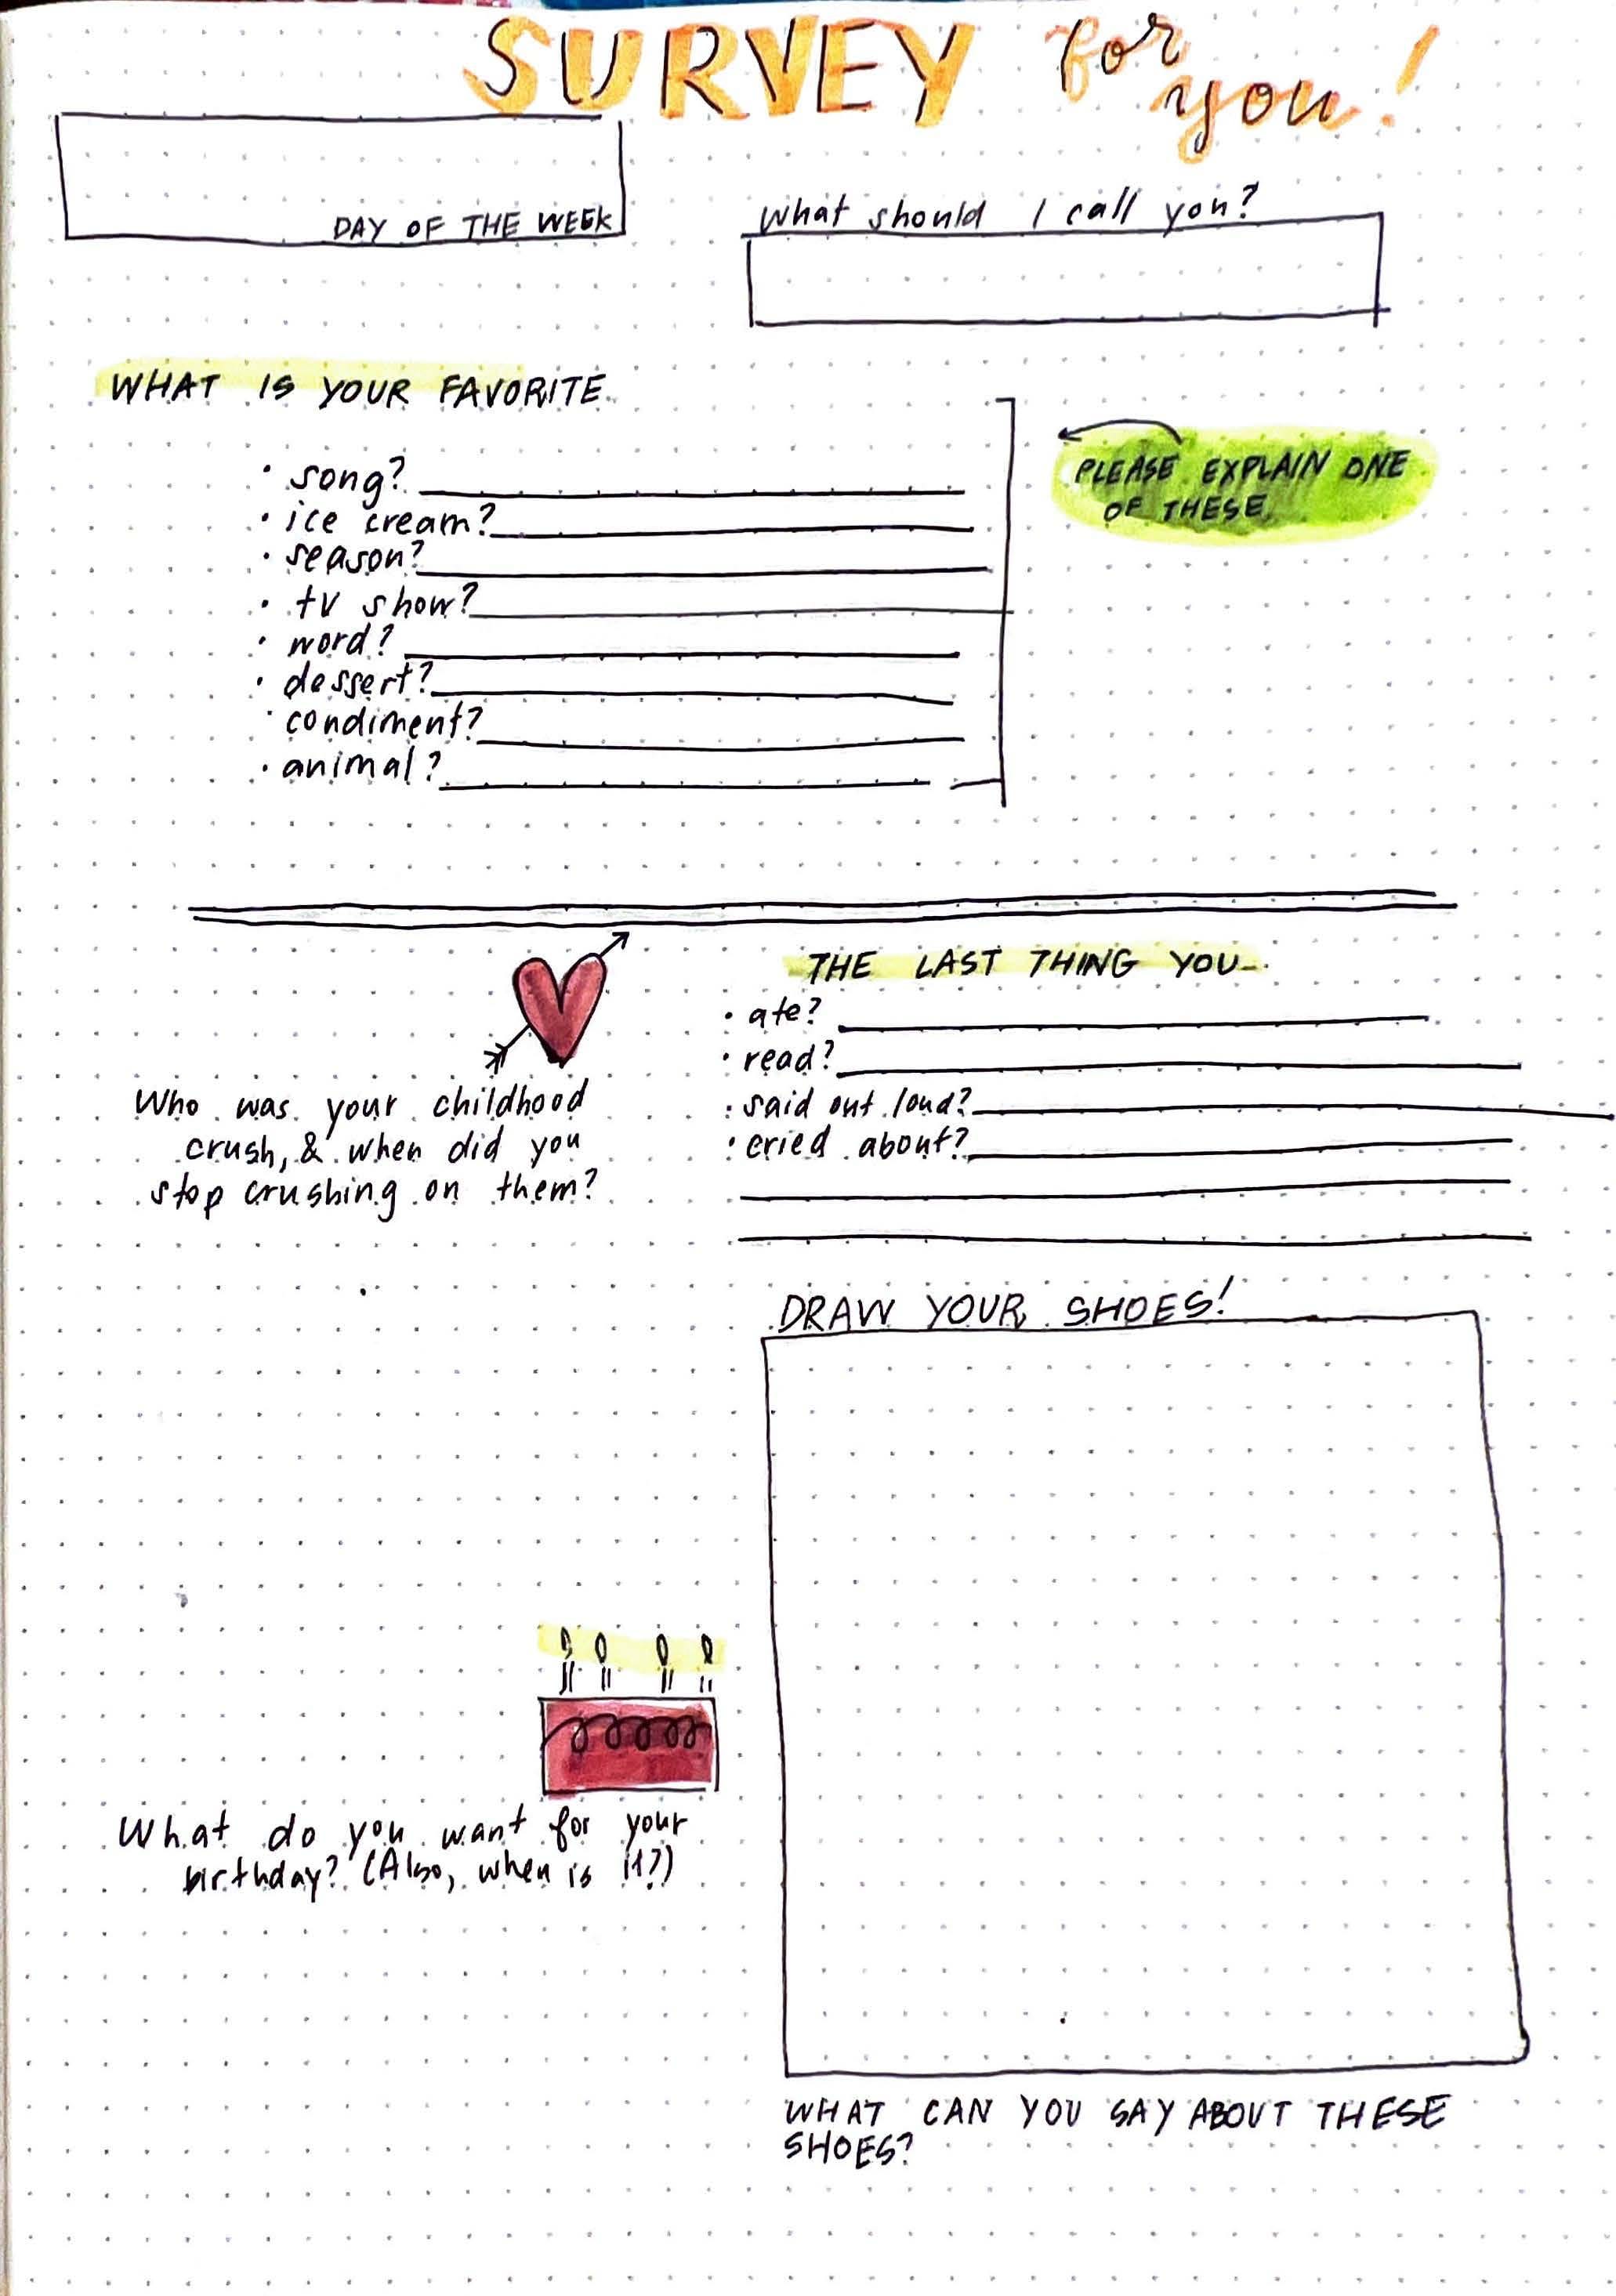 SURVEY for you!
DAY OF THE WEEK
What should I call you?
WHAT IS YOUR FAVORITE
• song?
• ice cream?
• season?
• tv show?
• word?
• dessert?
• condiment?
• animal?
PLEASE EXPLAIN ONE
OF THESE
Who was your childhood
crush, & when did you
stop crushing on them?
THE LAST THING YOU...
• ate?
• read?
• said out loud?
• cried about?
DRAW YOUR SHOES!
What do you want for your
birthday? (Also, when is it?)
WHAT CAN YOU SAY ABOUT THESE
SHOES?